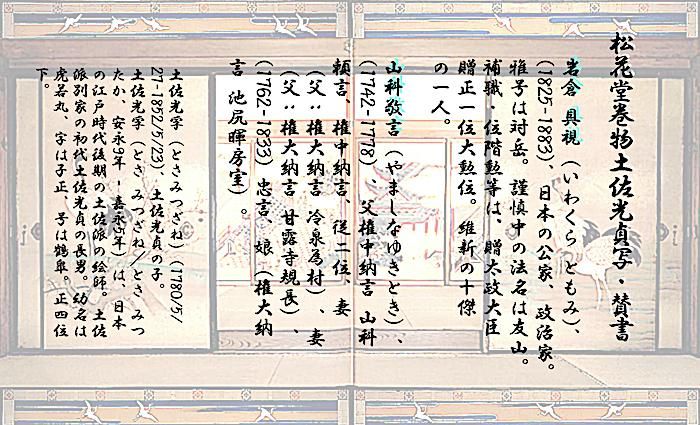 松花堂巻物土佐光貞写・賛書
岩倉 具視 (いわくら ともみ)、
(1825-1883)、日本の公家、政治家。
雅号は対岳。謹慎中の法名は友山。
補職・位階勲等は、贈太政大臣
贈正一位大勲位。維新の十傑
の一人。
山科敬言 (やましなゆきとき)、
(1742-1778) 父権中納言 山科
頼言、権中納言、従二位、妻
(父:権大納言 冷泉為村)、妻
(父:権大納言 甘露寺規長)、
(1762-1833) 忠言、娘 (権大納
言 池尻暉房室)。
土佐光孚 (とさみつざね) (1780/5/
27-1852/5/23)、土佐光貞の子。
土佐光孚 (とさ みつざね/とさ みつ
たか、安永9年 - 嘉永5年) は、日本
の江戸時代後期の土佐派の絵師。土佐
派別家の初代土佐光貞の長男。幼名は
虎若丸、字は子正 号は鶴皐。正四位
下。